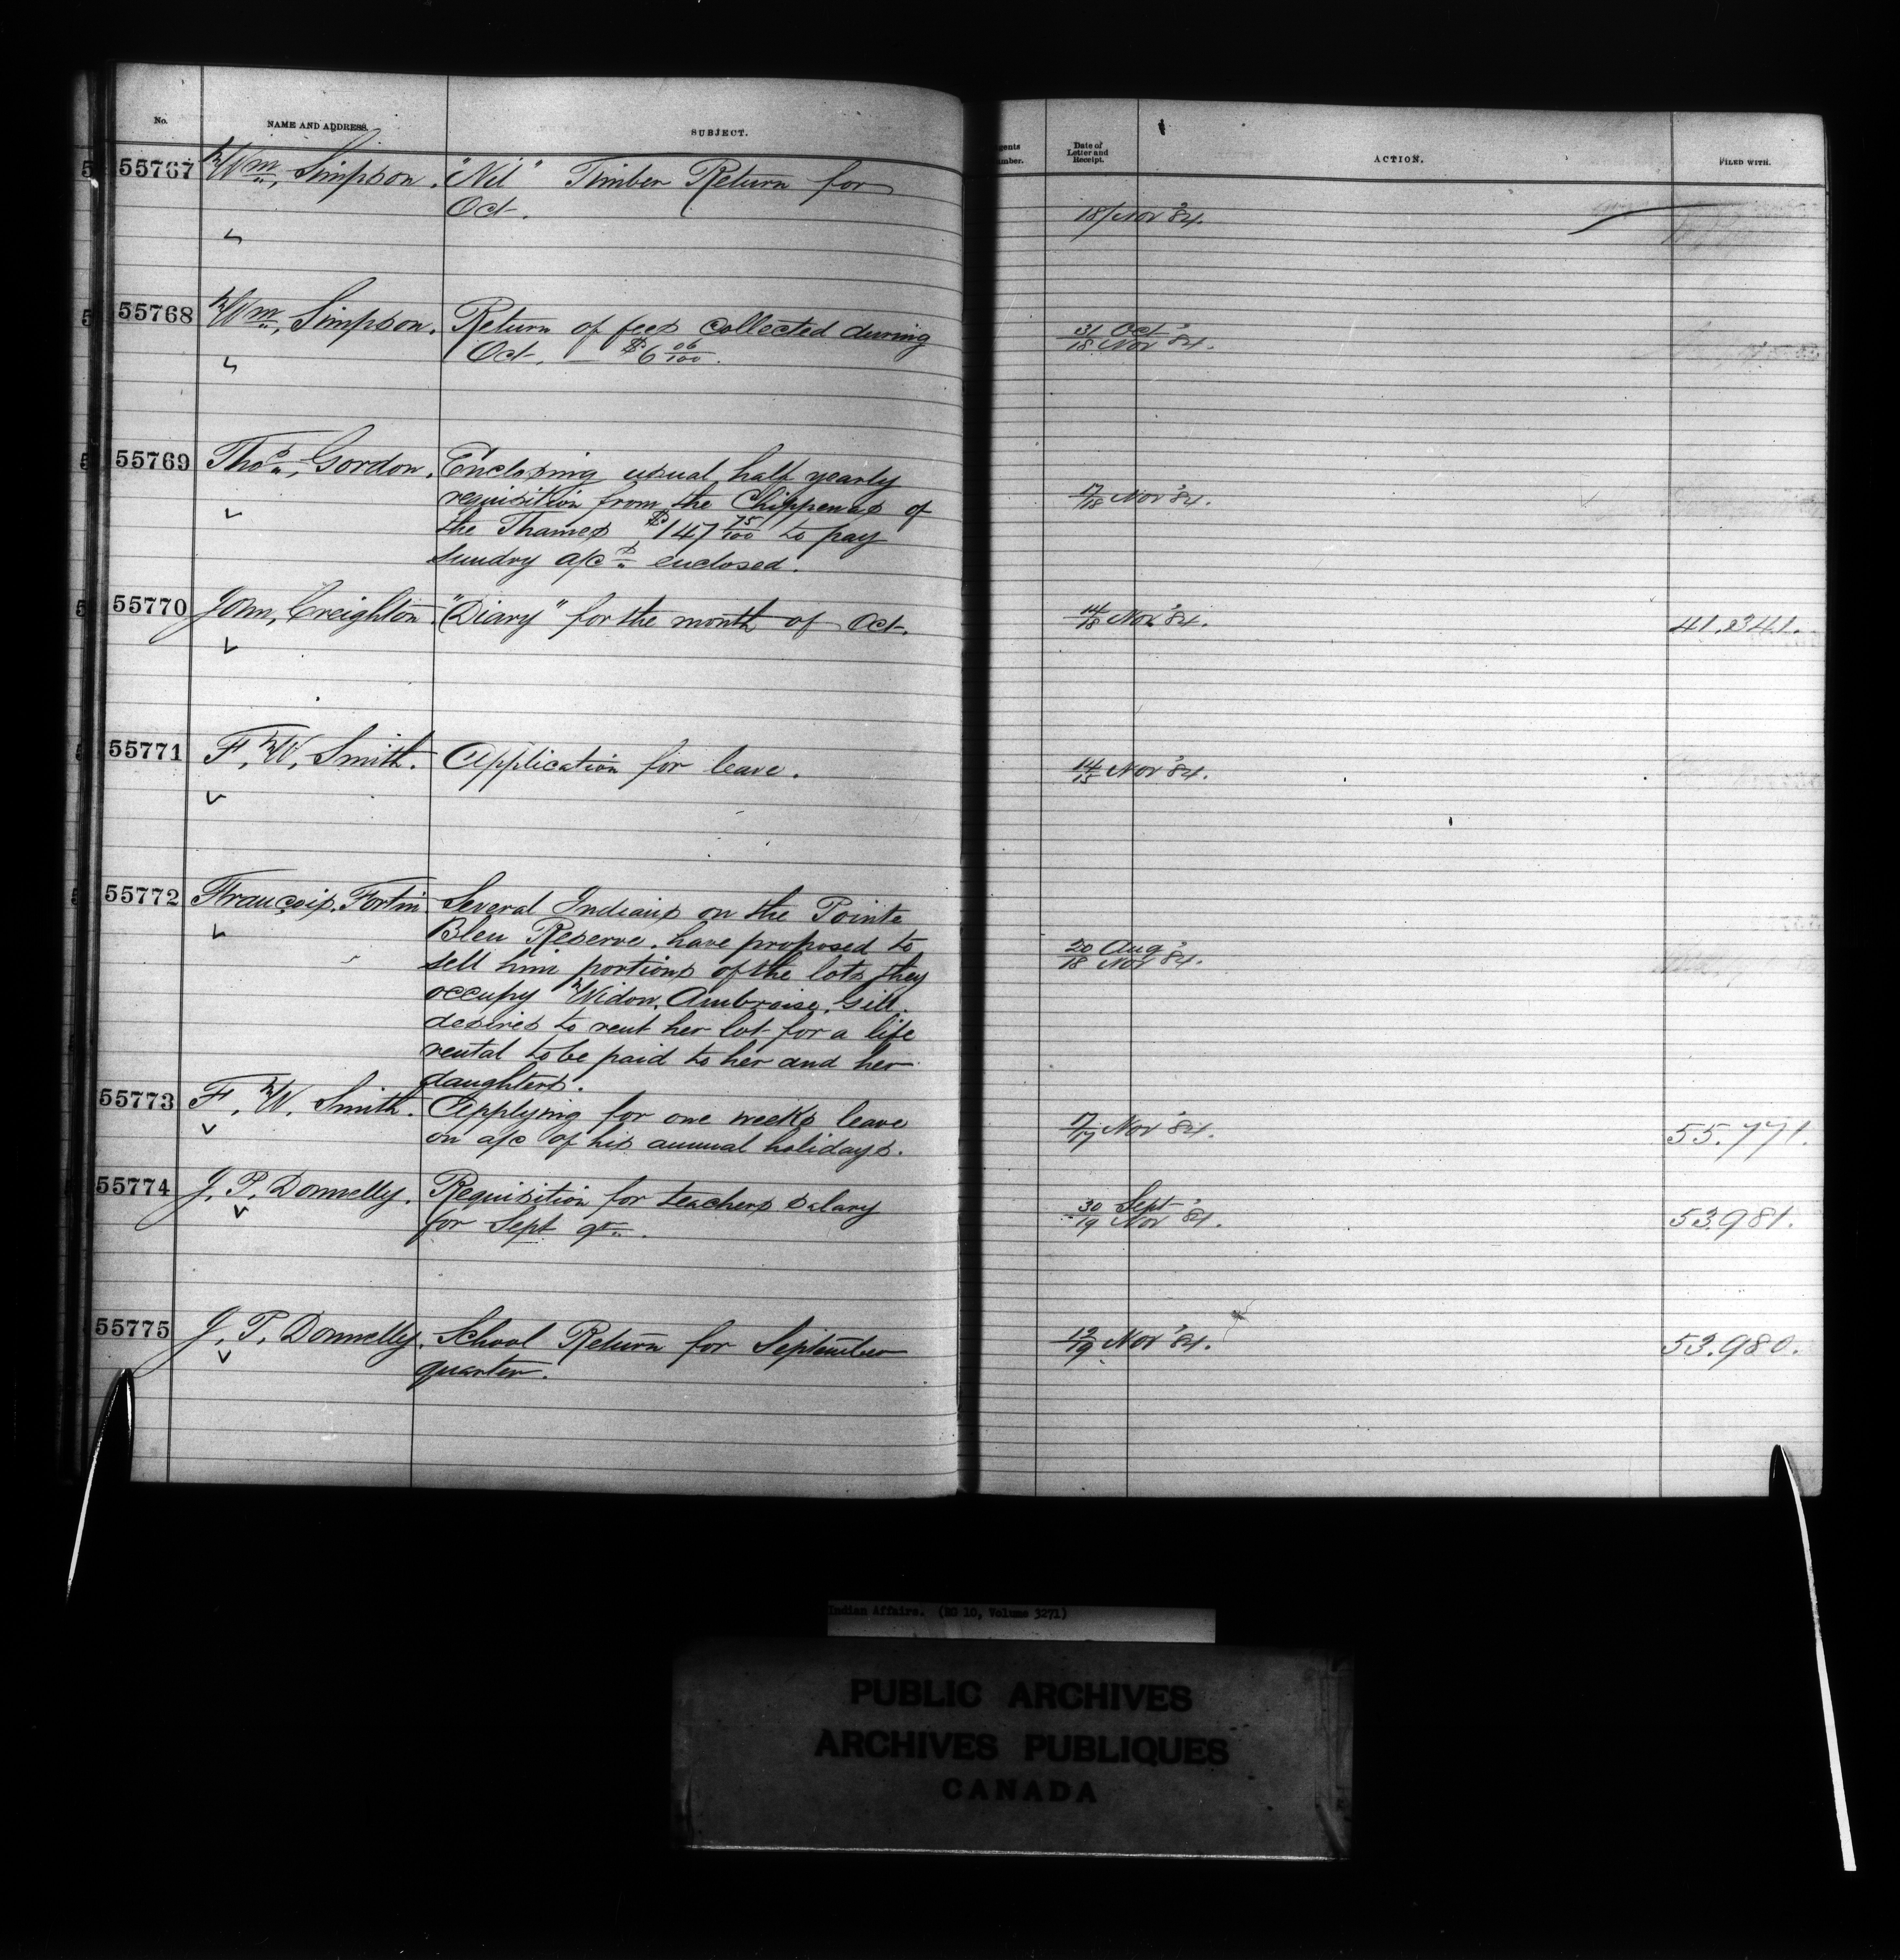 No. NAME AND ADDRESS. SUBJECT.
Date of Letter and Receipt. ACTION. FILED WITH.
55767 Wm, Simpson. "Nil" Timber Return for
Oct.
18/Nov '84.
55768 Wm, Simpson. Return of fees collected during
Oct. — $6 06/100.
31 Oct
18 Nov '84.
55769 Thos, Gordon. Enclosing usual half yearly
requisition from the Chippewas of
the Thames $147 75/100 to pay
Sundry a/cs enclosed.
17/18 Nov '84.
55770 John, Creighton. "Diary" for the month of Oct.
14/18 Nov '84. 41,341.
55771 F, W, Smith. Application for leave.
14/15 Nov '84.
55772 François, Fortin Several Indians on the Pointe
Bleu Reserve, have proposed to
sell him portions of the lots they
occupy Widow, Ambroise, Gill
desires to rent her lot for a life
rental to be paid to her and her
daughters.
20 Aug
18 Nov '84.
55773 F, W, Smith. Applying for one weeks leave
on a/c of his annual holidays.
17/17 Nov '84. 55.771.
55774 J, P, Donnelly. Requisition for teachers salary
for Sept qr.
30 Sept
19 Nov '84. 53981.
55775 J, P, Donnelly. School Return for September
quarter.
Nov '84. 53.980.
Indian Affairs. (RG 10, Volume 3271)
PUBLIC ARCHIVES
ARCHIVES PUBLIQUES
CANADA